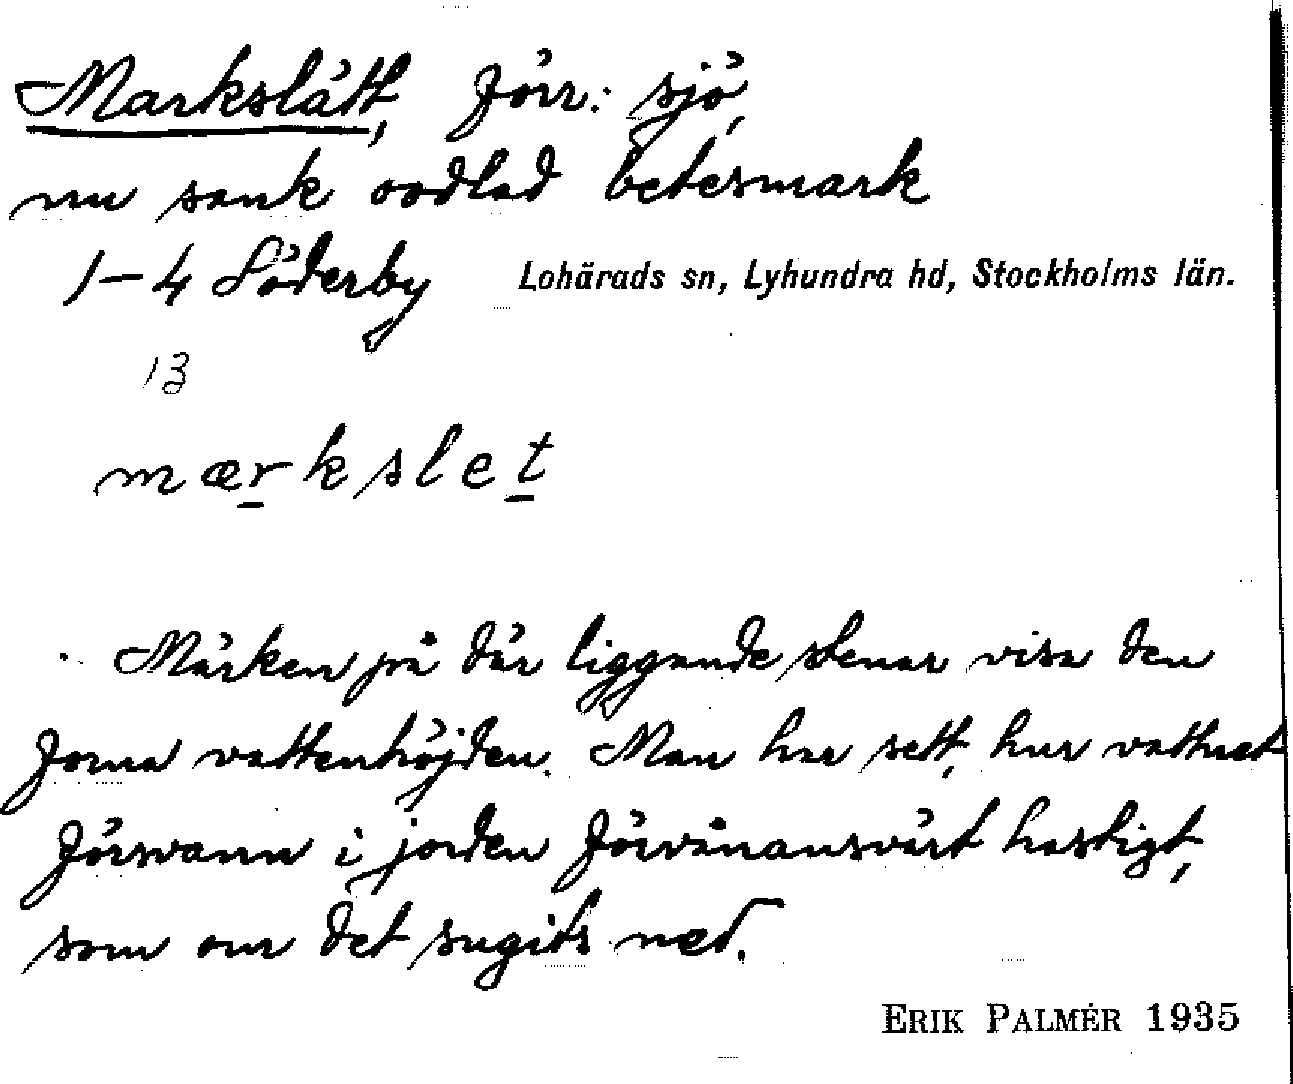 Markslätt, förr: sjö,
nu sank oodlad betesmark
1–4 Söderby Lohärads sn, Lyhundra hd, Stockholms län.
13
mærkslet
Märken på där liggande stenar visa den
forna vattenhöjden. Man har sett, hur vattnet
försvann i jorden förvånansvärt hastigt,
som om det sugits ned.
ERIK PALMÉR 1935